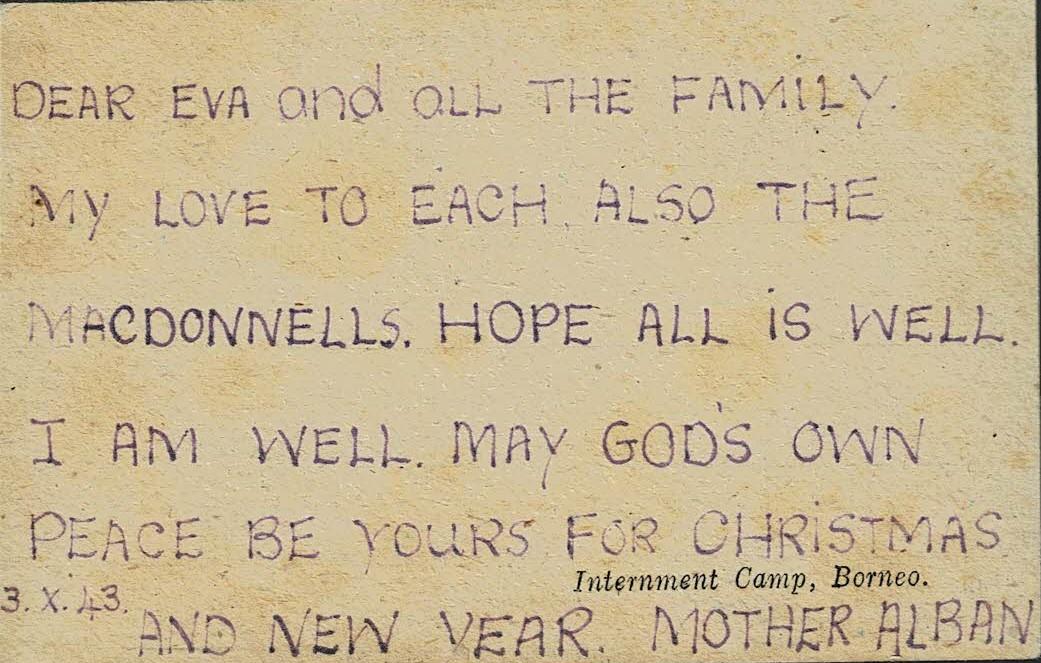 DEAR EVA and aLL THE FAMiLY.
MY LOVE TO EACH. ALSO THE
MACDONNELLS. HOPE ALL iS WELL.
I AM WELL. MAY GOD'S OWN
PEACE BE YOURS FOR CHRiSTMAS
Internment Camp, Borneo.
3. X. 43.
AND NEW YEAR. MOTHER ALBAN